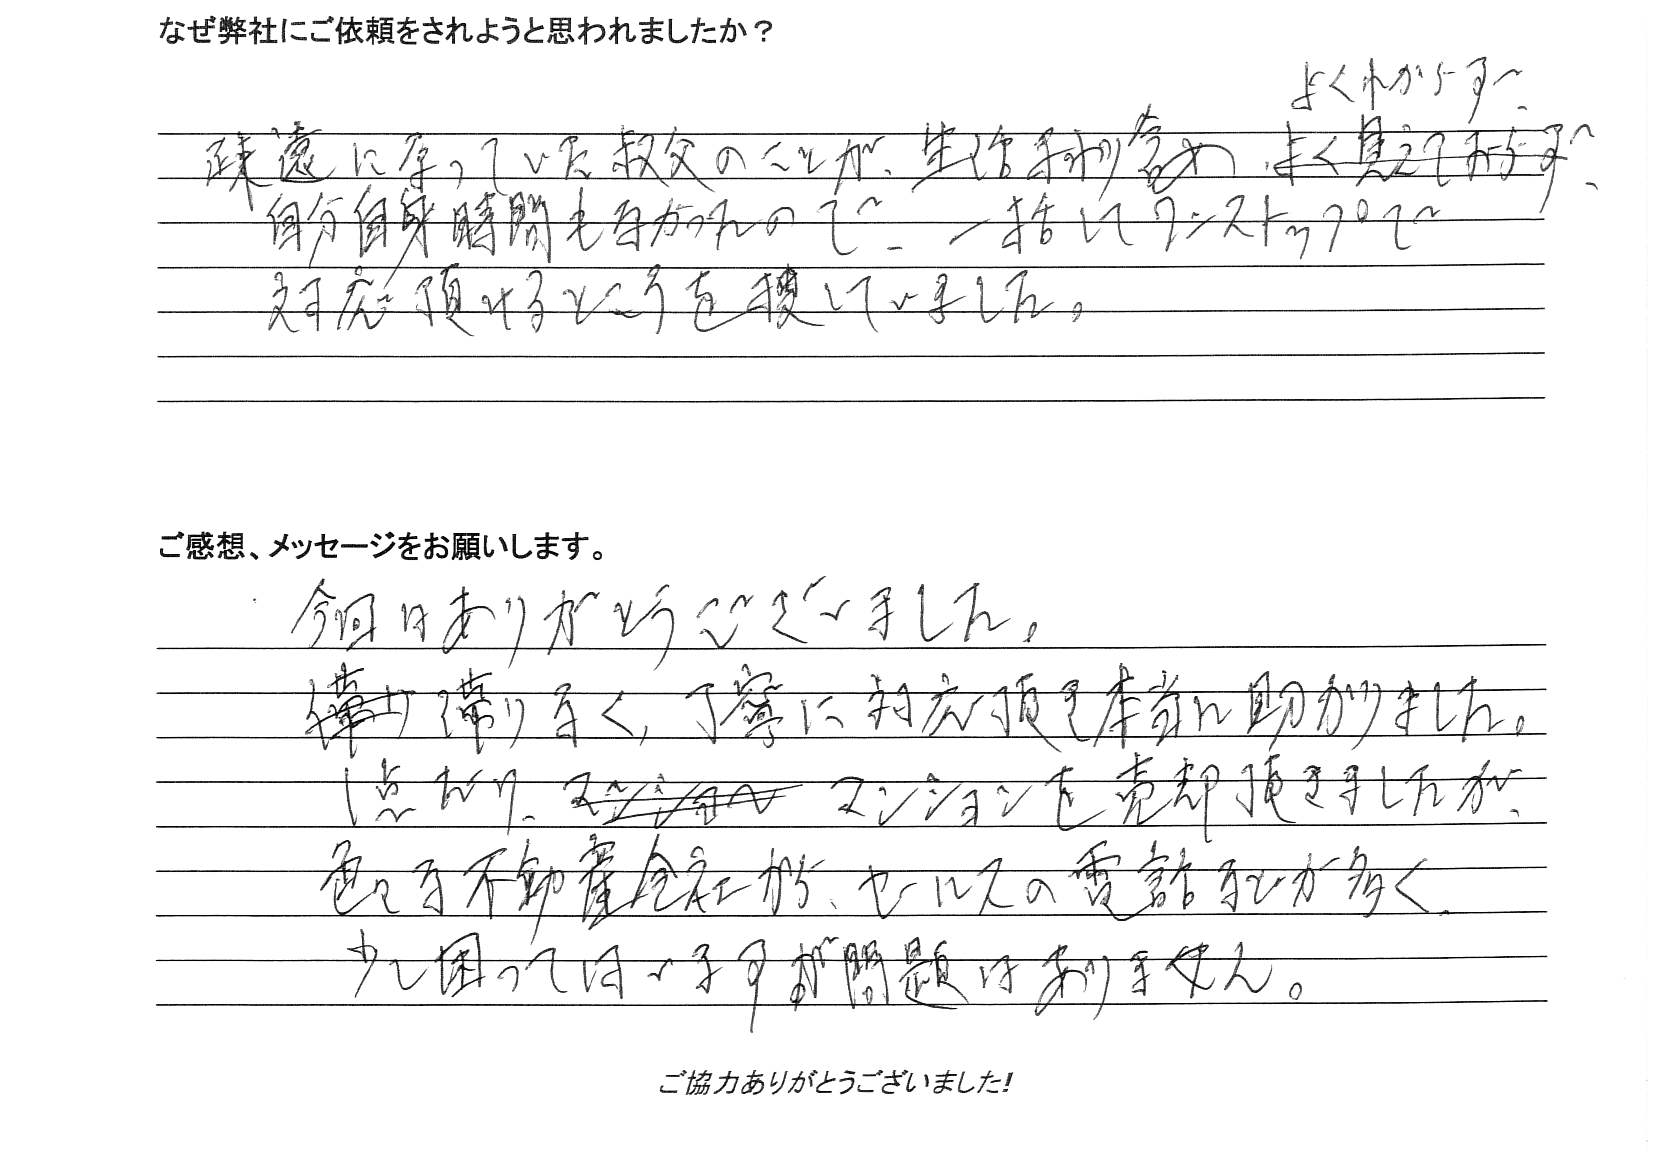 なぜ弊社にご依頼をされようと思われましたか？
よくわからず、
疎遠になっていた叔父のことが、生活まわり含め、よく覚えておらず、
自分自身時間もなかったので、一括してワンストップで
対応頂けるところを捜していました。
ご感想、メッセージをお願いします。
今回はありがとうございました。
滞り滞りなく、丁寧に対応頂き本当に助かりました。
1点だけ、マンション マンションを売却頂きましたが、
色々な不動産会社から、セールスの電話などが多く、
少し困ってはいますが問題はありません。
ご協力ありがとうございました!